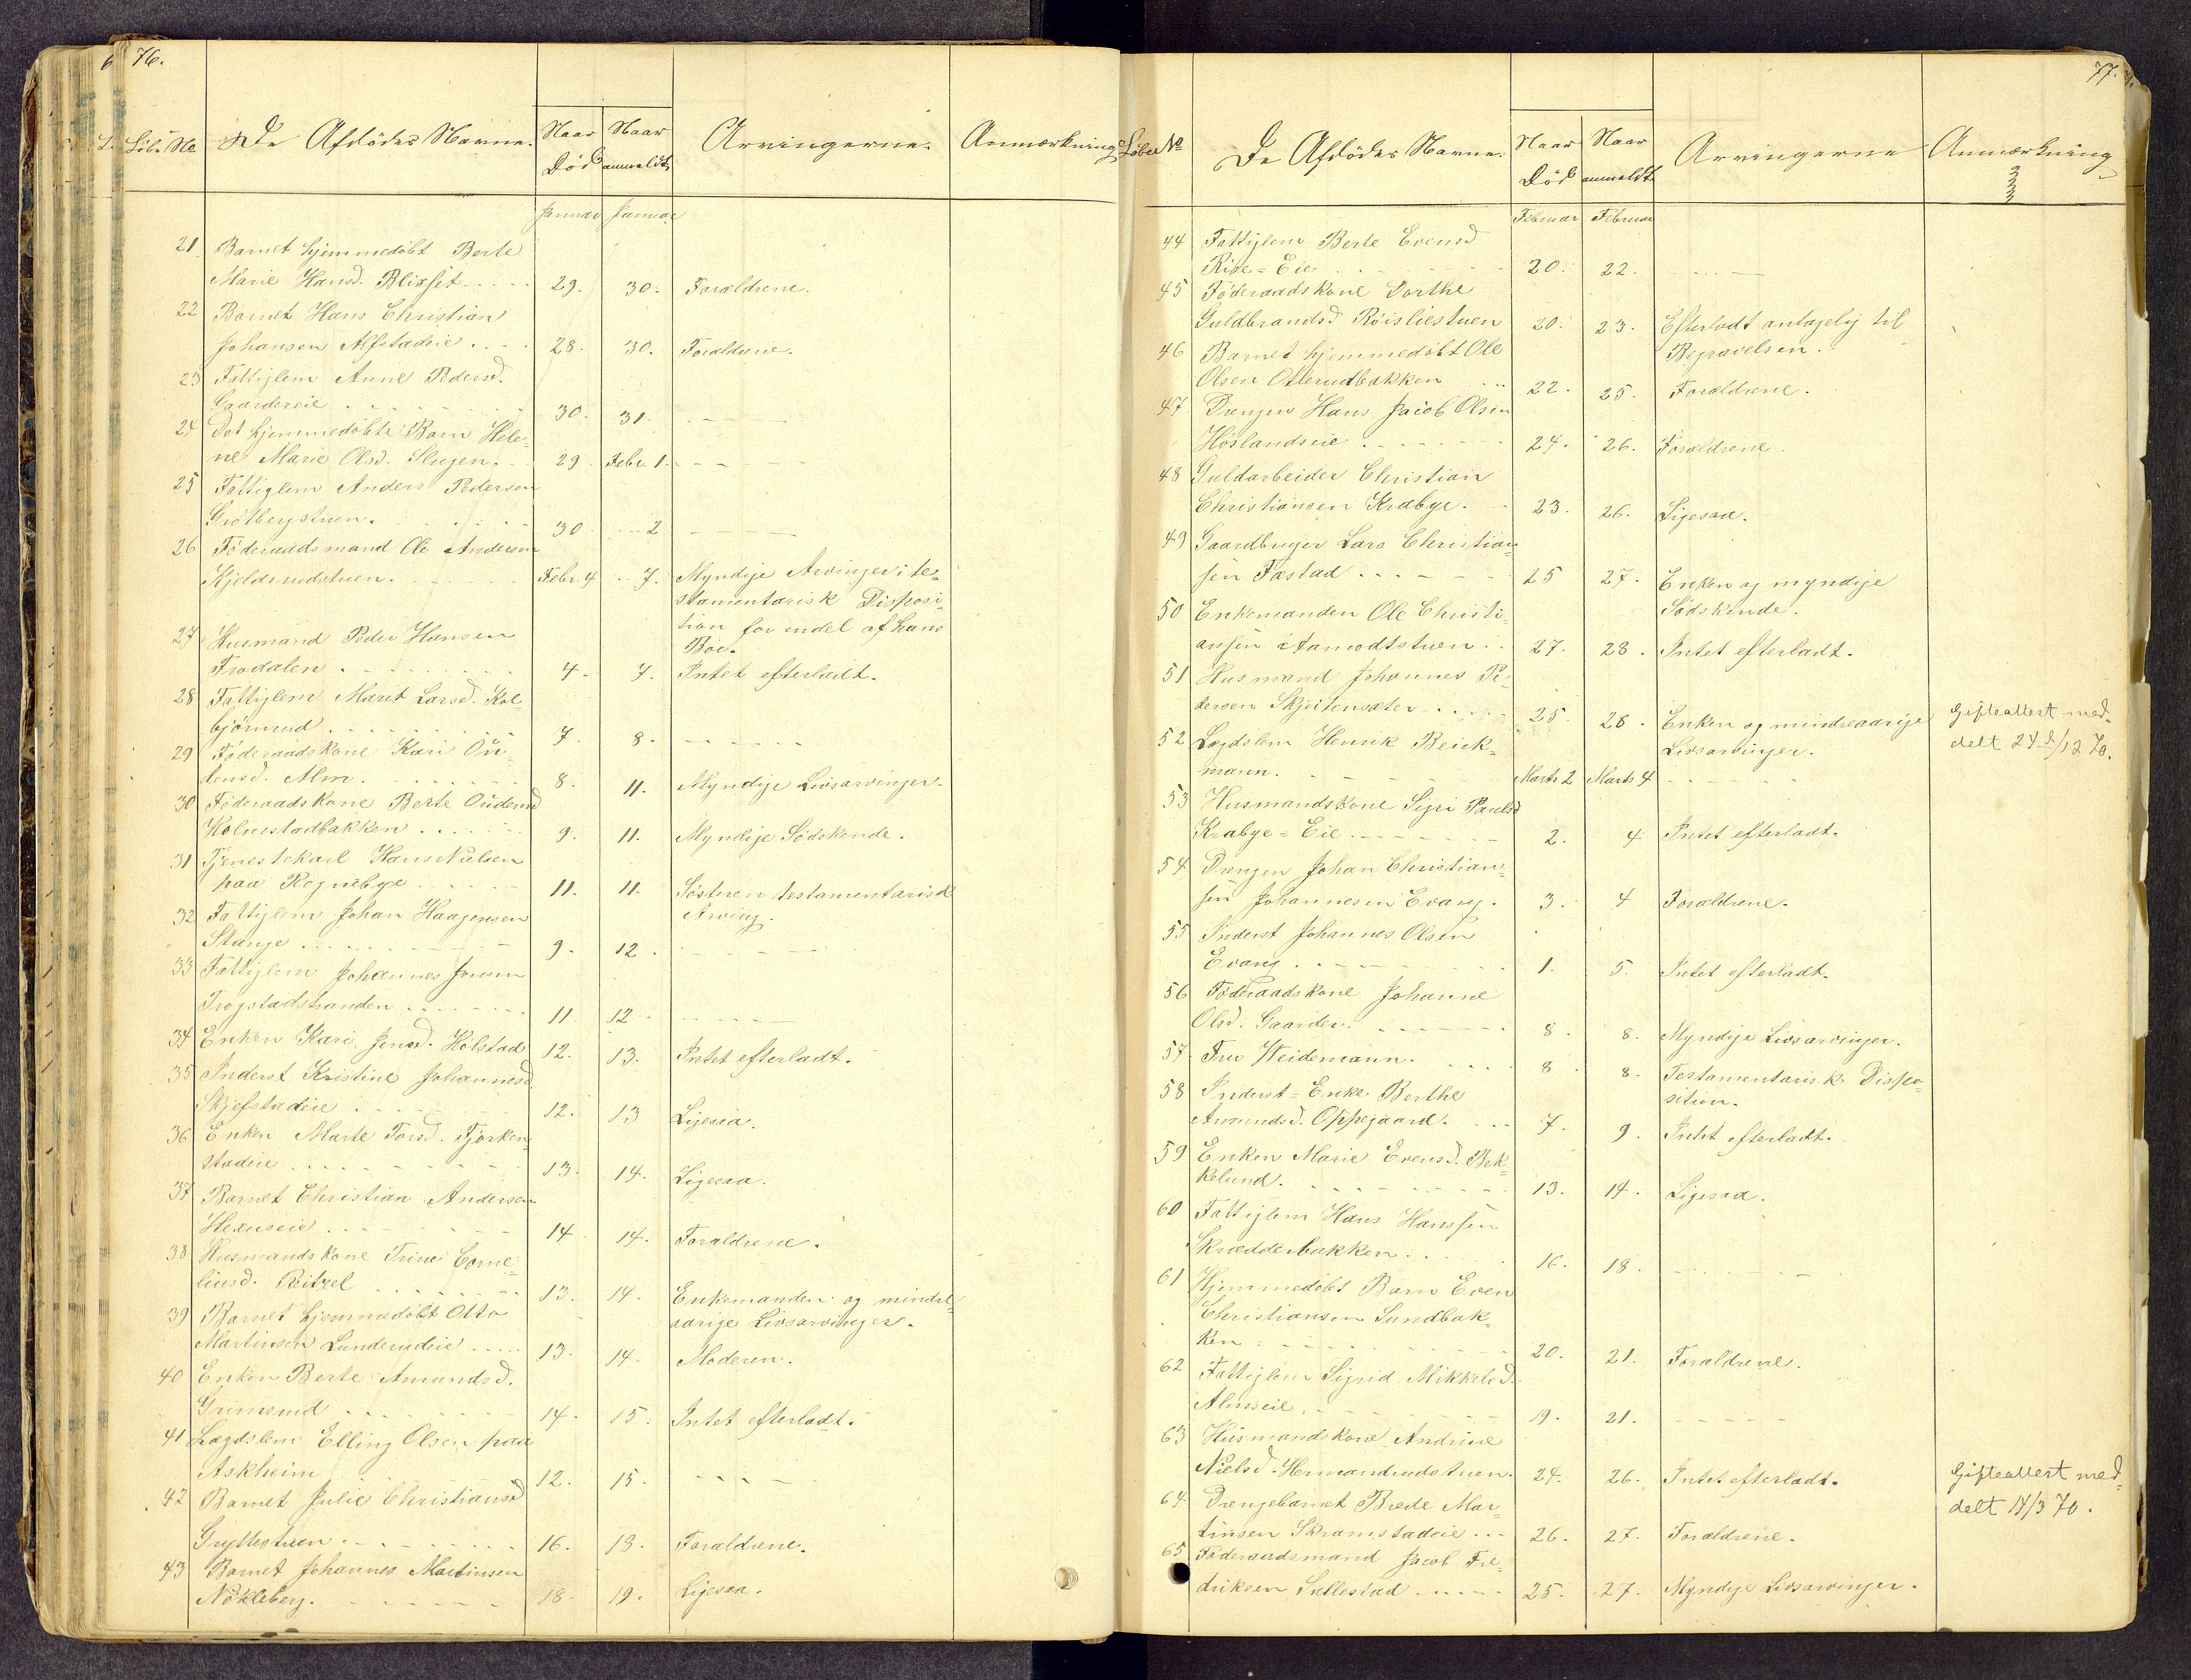 76.
Löb. No De Afdödes Navne. Naar Död Naar anmeldt Arvingerne. Anmærkning
Januar Januar
21 Barnet hjemmedöbt Berte
Marie Hansd. Blixset 29. 30. Forældrene.
22 Barnet Hans Christian
Johansen Alfstadeie 28. 30. Forældrene.
23 Fattiglem Anne Pedersd.
Gaardereie 30. 31.
24 Det hjemmedöbte Barn Hele-
ne Marie Olsd. Slugen. 29 Febr. 1.
25 Fattiglem Anders Pedersen
Grötbergstuen. 30 2
26 Föderaadsmand Ole Andersen
Kjeldsrudstuen. Febr. 4 7. Myndige Arvinger; te-
stamentarisk Disposi-
tion for endel af hans
Boe.
27 Husmand Peder Hansen
Frodalen 4. 7. Intet efterladt.
28 Fattiglem Marit Larsd. Kol-
björnrud 7 8.
29 Föderaadskone Kari Öu-
densd. Alm. 8. 11. Myndige Livsarvinger.
30 Föderaadskone Berte Oudensd
Kolnestadbakken 9. 11. Myndige Södskende.
31 Tjenestekarl Hans Nielsen
paa Rognebye 11. 11. Söstren testamentarisk
Arving.
32 Fattiglem Johan Haagensen
Stange 9. 12.
33 Fattiglem Johannes Jensen
Trogstadstranden 11. 12
34 Enken Kari Jensd. Hölstad 12. 13. Intet efterladt.
35 Inderst Kristine Johannesd
Skjefstadeie 12. 13 Ligesaa.
36 Enken Marte Torsd. Fjorken-
stadeie 13. 14. Ligesaa.
37 Barnet Christian Andersen
Hexuseie 14 14. Forældrene.
38 Husmandskone Trine Corne-
liusd. Ritzel 13. 14. Enkemanden og mindre-
aarige Livsarvinger.
39 Barnet hjemmedöbt Otto
Martinsen Lunderudeie 13. 14. Moderen.
40 Enken Berte Amundsd.
Grimsrud 14. 15. Intet efterladt.
41 Lægdslem Elling Olsen paa
Askheim 12. 15.
42 Barnet Julie Christiansd
Gryttestuen 16. 18. Forældrene.
43 Barnet Johannes Martinsen
Nökleberg. 18. 19. Ligesaa.
77.
Löbe No De Afdödes Navne. Naar Död Naar anmeldt Arvingerne Anmærkning
Februar Februar
44 Fattiglem Berte Evensd
Rise=Eie 20. 22.
45 Föderaadskone Dorthe
Guldbrandsd Röisliestuen 20. 23. Efterladt antagelig til
Begravelsen.
46 Barnet hjemmedöbt Ole
Olsen Ollerudbakken 22. 25. Forældrene.
47 Drengen Hans Jacob Olsen
Höslandseie 24. 26. Forældrene.
48 Guldarbeider Christian
Christiansen Krabye. 23. 26. Ligesaa.
49 Gaardbruger Lars Christian-
sen Fæstad 25 27. Enken og myndige
Södskende.
50 Enkemanden Ole Christi-
ansen Aamodtstuen 27. 28. Intet efterladt.
51 Husmand Johannes Pe-
dersen Skjeitensæter 25. 28. Enken og mindreaarige
Livsarvinger.
Gifteattest med-
delt 24/12 70.
52 Lægdslem Henrik Beick-
mann. Marts 2 Marts 4
53 Husmandskone Sigri Paulsd
Krabye=Eie 2. 4 Intet efterladt.
54 Drengen Johan Christian-
sen Johannesen Evang. 3. 4 Forældrene.
55 Inderst Johannes Olsen
Evang 1. 5. Intet efterladt.
56 Föderaadskone Johanne
Olsd. Gaarder. 8. 8. Myndige Livsarvinger.
57 Fru Weidemann. 8 8. Testamentarisk Dispo-
sition.
58 Inderst=Enke Berthe
Amundsd. Oppegaard. 7. 9. Intet efterladt.
59 Enken Marie Evensd. Bek-
kelund. 13. 14. Ligesaa.
60 Fattiglem Hans Hanssen
Skrædderbakken 16. 18.
61 Hjemmedöbt Barn Even
Christiansen Sundbak-
ken 20. 21. Forældrene.
62 Fattiglem Sigrid Mikkelsd.
Almseie 19. 21.
63 Husmandskone Andrine
Nielsd. Hermandrudstuen. 24. 26. Intet efterladt.
Gifteattest med-
delt 14/3 70.
64 Drengebarnet Brede Mar-
tinsen Skramstadeie 26. 27. Forældrene.
65 Föderaadsmand Jacob Fre-
driksen Sællestad 25. 27. Myndige Livsarvinger.